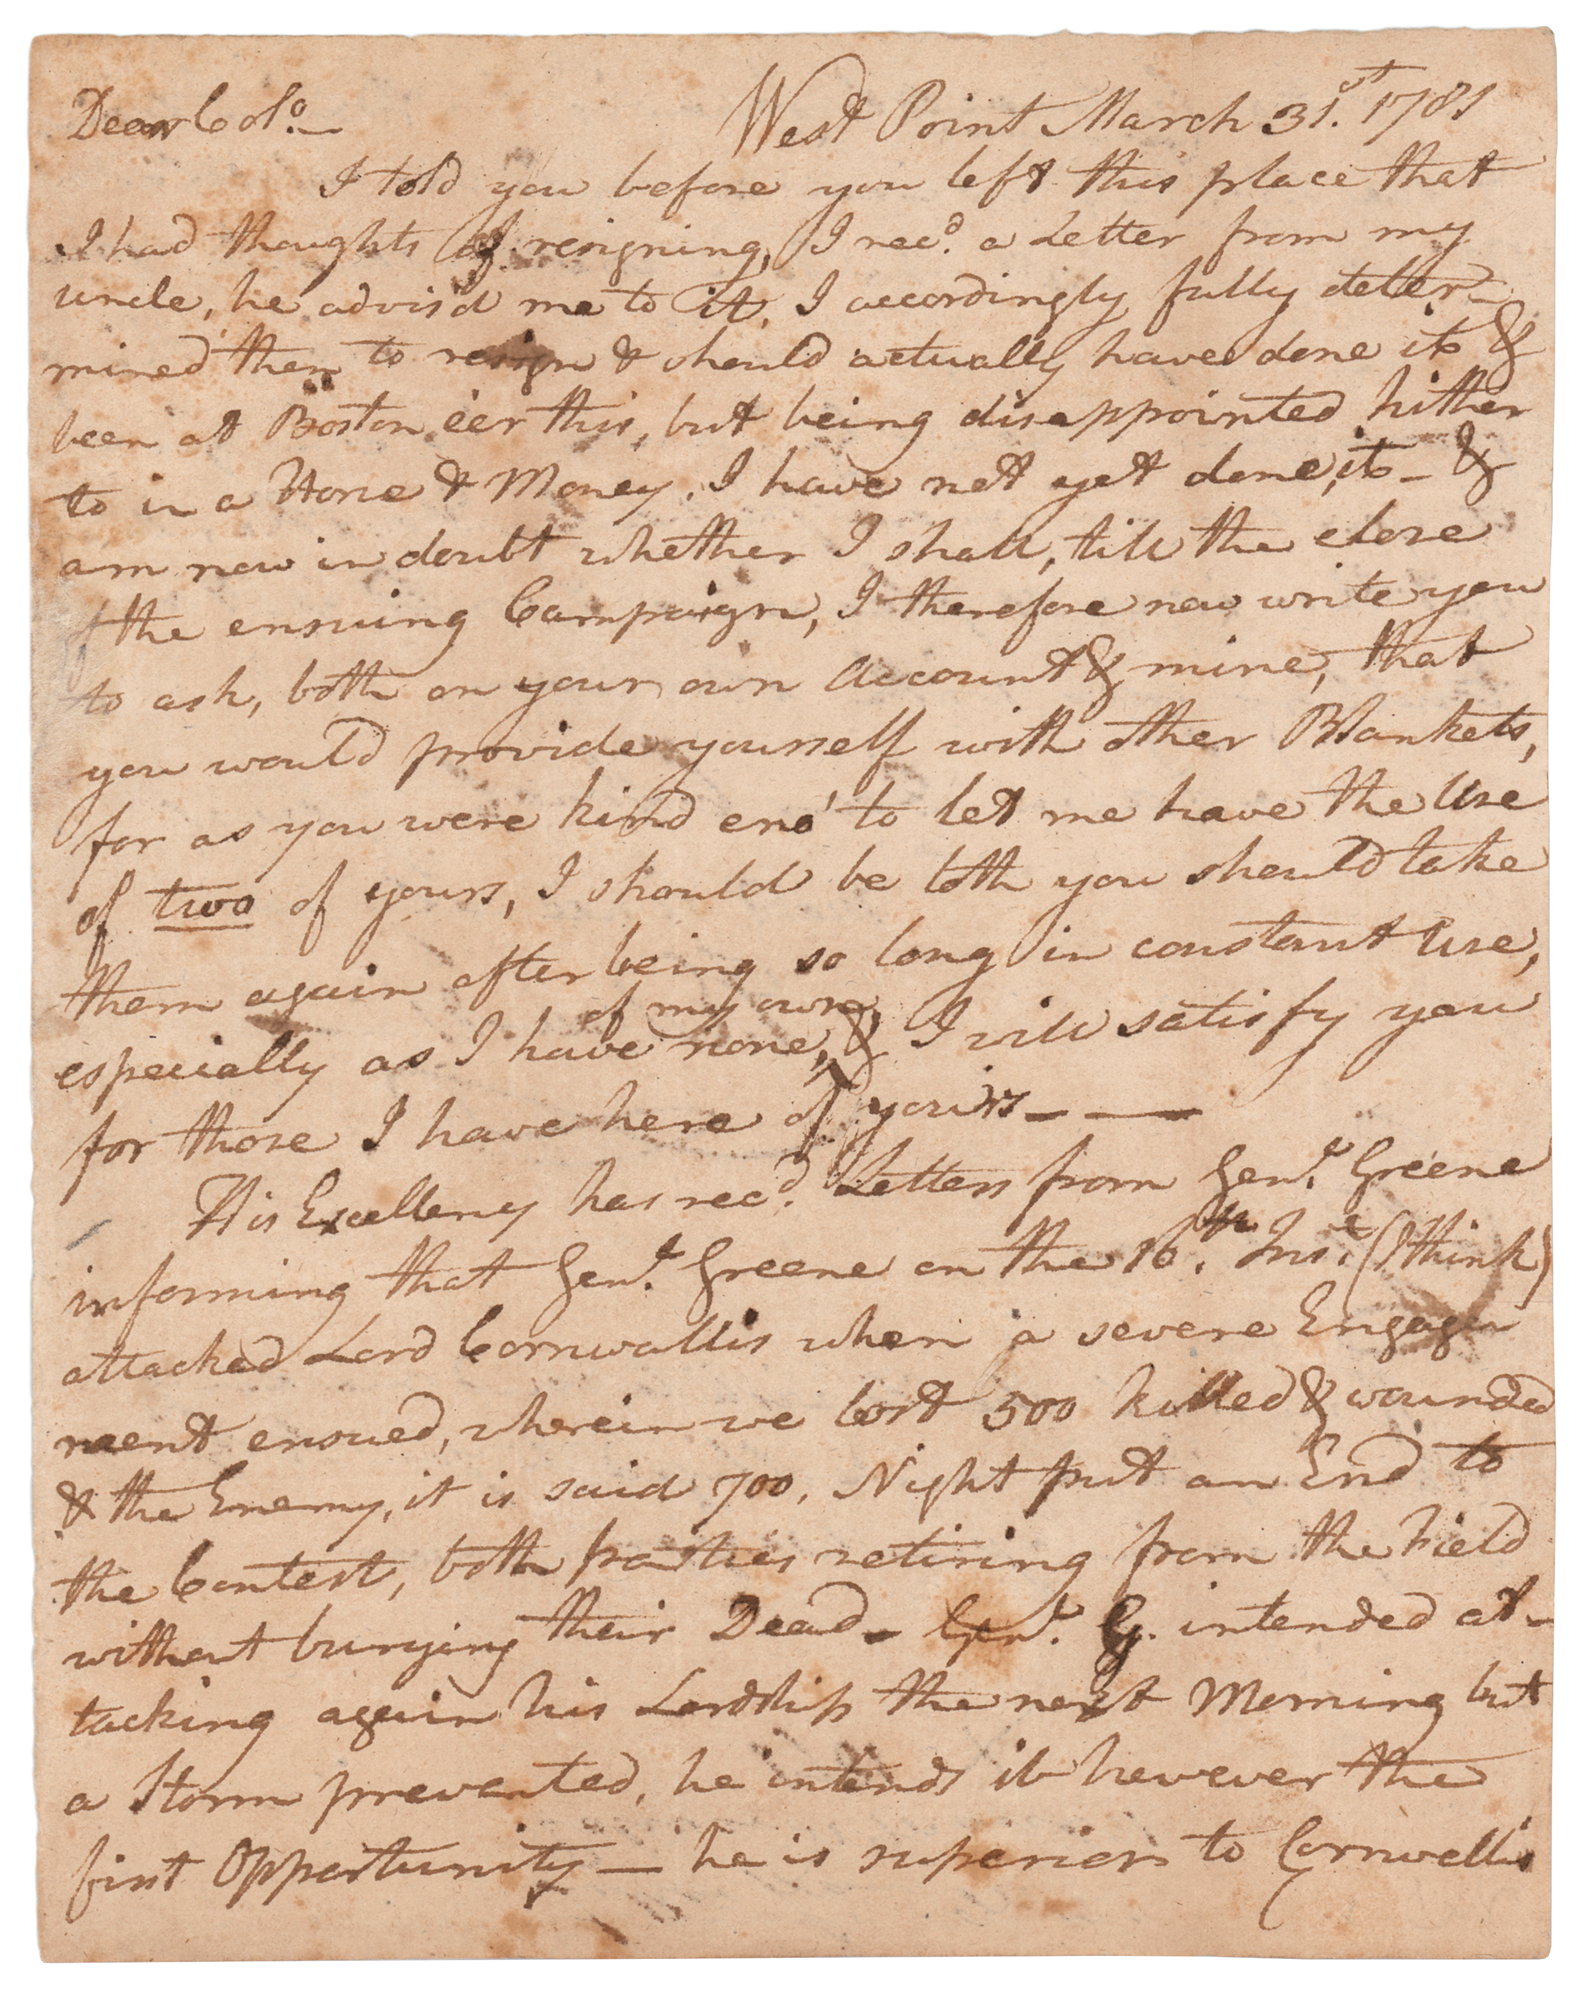 West Point March 31.st 1781
Dear Colo.—
I told you before you left this place that
I had thoughts of resigning, I recd. a Letter from my
uncle, he advis'd me to it, I accordingly fully deter-
mined then to resign & should actually have done it &
been at Boston e'er this, but being disappointed hither
to in a Horse & Money, I have not yet done it — &
am now in doubt whether I shall, till the close
of the ensuing Campaign, I therefore now write you
to ask, both on your own account & mine, that
you would provide yourself with other Blankets,
for as you were kind eno' to let me have the Use
of two of yours, I should be loth you should take
them again after being so long in constant Use,
of my own
especially as I have none, & I will satisfy you
for those I have here of yours — —
His Excellency has recd. Letters from Genl. Greene
informing that Genl. Greene on the 16.th Inst. (I think)
attacked Lord Cornwallis when a severe Engage
ment ensued, wherein we lost 500 killed & wounded
& the Enemy, it is said 700, Night put an End to
the Contest, both parties retiring from the Field
without burying their Dead — Genl. G. intended at-
tacking again his Lordship the next Morning but
a Storm prevented, he intends it however the
first Opportunity — he is superior to Cornwallis